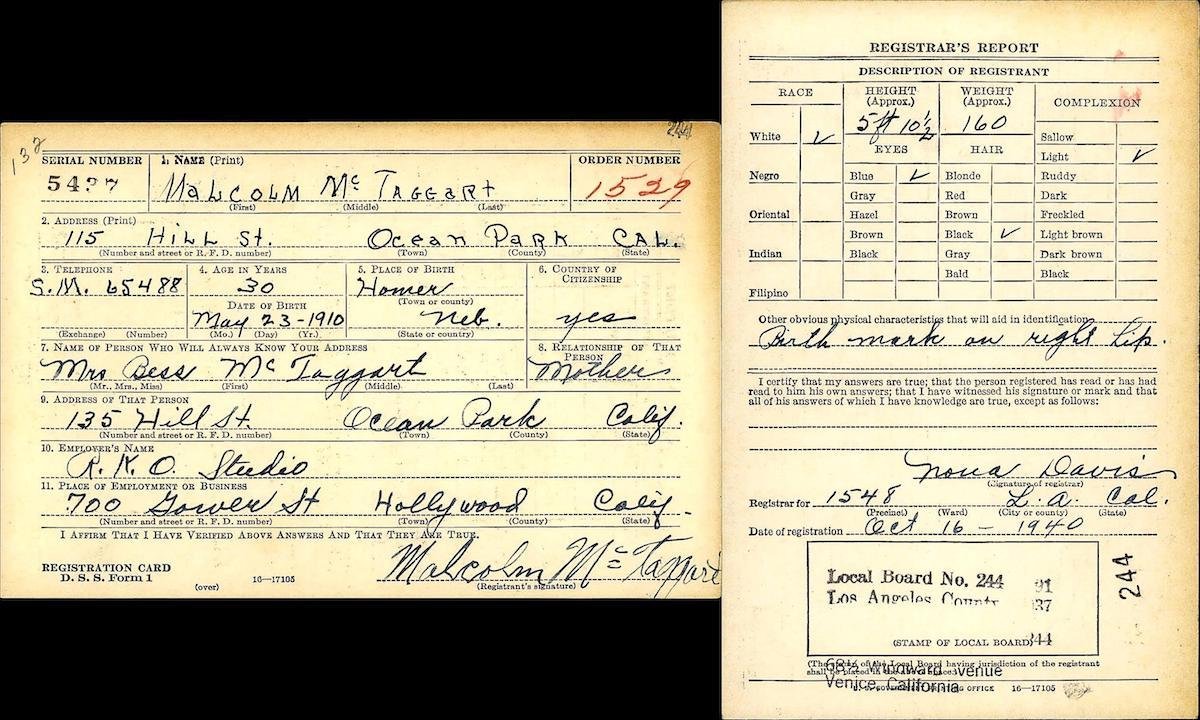 132
244
SERIAL NUMBER 1. NAME (Print) ORDER NUMBER
MALCOLM Mc TAGGART 1529
(First) (Middle) (Last)
2. ADDRESS (Print)
115 HILL St. OCEAN PARK CAL.
(Number and street or R. F. D. number) (Town) (County) (State)
3. TELEPHONE 4. AGE IN YEARS 5. PLACE OF BIRTH 6. COUNTRY OF CITIZENSHIP
S.M. 65488 30 Homer
(Town or county)
DATE OF BIRTH
May 23-1910 Neb. yes
(Exchange) (Number) (Mo.) (Day) (Yr.) (State or country)
7. NAME OF PERSON WHO WILL ALWAYS KNOW YOUR ADDRESS 8. RELATIONSHIP OF THAT PERSON
Mrs Bess Mc Taggart Mother
(Mr., Mrs., Miss) (First) (Middle) (Last)
9. ADDRESS OF THAT PERSON
135 Hill St. Ocean Park Calif.
(Number and street or R. F. D. number) (Town) (County) (State)
10. EMPLOYER'S NAME
R.K.O. Studio
11. PLACE OF EMPLOYMENT OR BUSINESS
700 Gower St Hollywood Calif.
(Number and street or R. F. D. number) (Town) (County) (State)
I AFFIRM THAT I HAVE VERIFIED ABOVE ANSWERS AND THAT THEY ARE TRUE.
REGISTRATION CARD
D. S. S. Form 1
(over)
16—17105
Malcolm Mc Taggart
(Registrant's signature)
REGISTRAR'S REPORT
DESCRIPTION OF REGISTRANT
RACE HEIGHT (Approx.) WEIGHT (Approx.) COMPLEXION
5 ft 10½ 160
White ✓ Sallow
EYES HAIR Light ✓
Negro Blue ✓ Blonde Ruddy
Gray Red Dark
Oriental Hazel Brown Freckled
Brown Black ✓ Light brown
Indian Black Gray Dark brown
Bald Black
Filipino
Other obvious physical characteristics that will aid in identification
Birth mark on right hip.
I certify that my answers are true; that the person registered has read or has had
read to him his own answers; that I have witnessed his signature or mark and that
all of his answers of which I have knowledge are true, except as follows:
Nona Davis
(Signature of registrar)
Registrar for 1548 L.A. Cal.
(Precinct) (Ward) (City or county) (State)
Date of registration Oct 16 - 1940
Local Board No. 244 91
Los Angeles County 37
244
(STAMP OF LOCAL BOARD)
(The stamp of the Local Board having jurisdiction of the registrant
shall be placed in the above space.)
Windward Avenue
Venice, California
16—17105